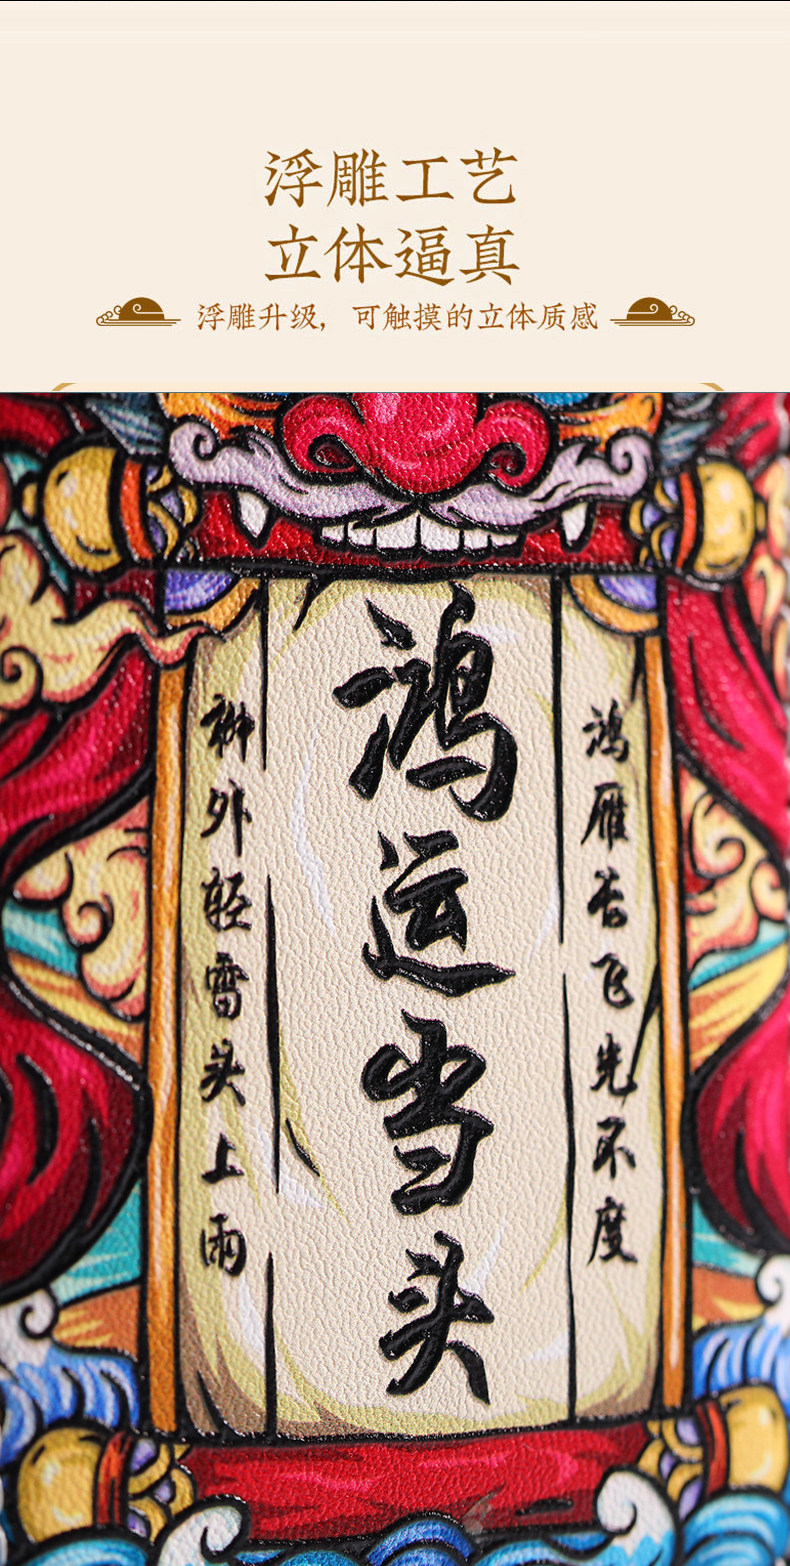 浮雕工艺
立体逼真
浮雕升级，可触摸的立体质感
鸿雁长飞先不度
鸿运当头
柳外轻雷头上雨